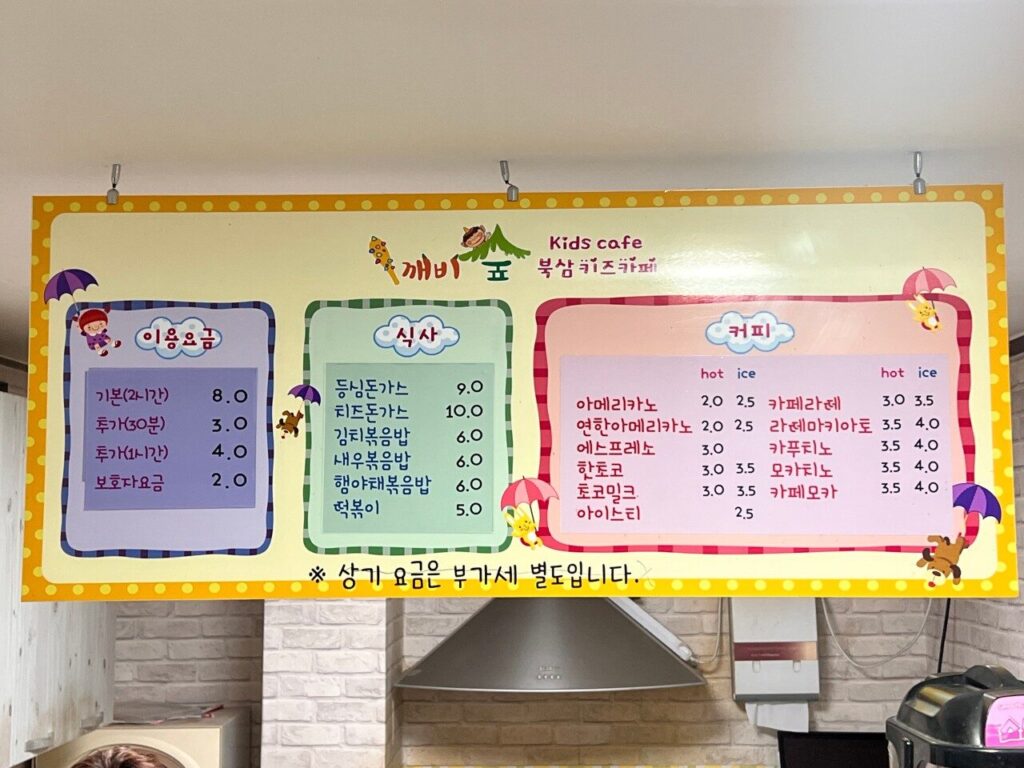 깨비숲
Kids cafe
북삼키즈카페
이용요금
기본(2시간) 8.0
추가(30분) 3.0
추가(1시간) 4.0
보호자요금 2.0
식사
등심돈가스 9.0
치즈돈가스 10.0
김치볶음밥 6.0
새우볶음밥 6.0
햄야채볶음밥 6.0
떡볶이 5.0
커피
hot ice
아메리카노 2.0 2.5
연한아메리카노 2.0 2.5
에스프레소 3.0
핫초코 3.0 3.5
초코밀크 3.0 3.5
아이스티 2.5
hot ice
카페라떼 3.0 3.5
라떼마키아토 3.5 4.0
카푸티노 3.5 4.0
모카티노 3.5 4.0
카페모카 3.5 4.0
※ 상기 요금은 부가세 별도입니다.